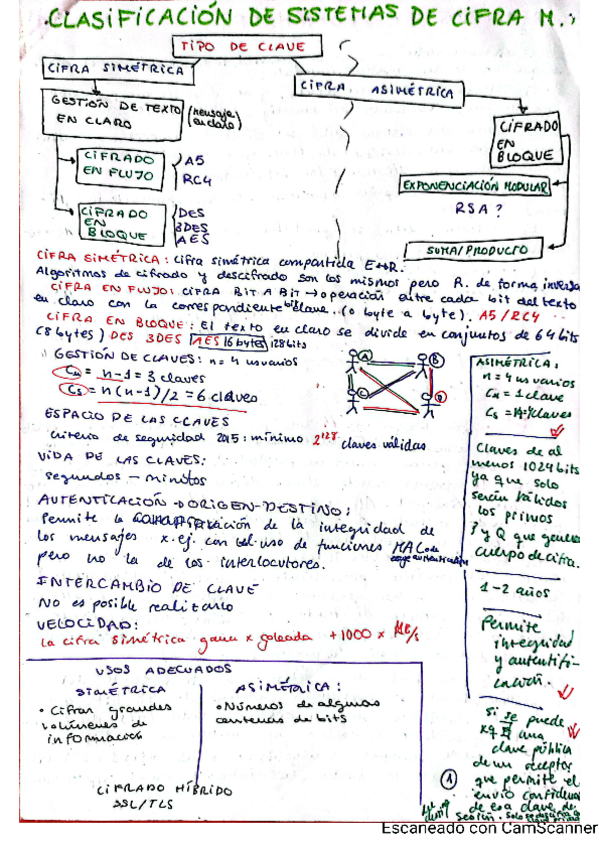 CLASIFICACIÓN DE SISTEMAS DE CIFRA M.
TIPO DE CLAVE
CIFRA SIMÉTRICA
CIFRA ASIMÉTRICA
GESTIÓN DE TEXTO
EN CLARO
(mensaje
en claro)
CIFRADO
EN
BLOQUE
CIFRADO
EN FLUJO
A5
RC4
EXPONENCIACIÓN MODULAR
RSA ?
CIFRADO
EN
BLOQUE
DES
3DES
AES
SUMA/PRODUCTO
CIFRA SIMÉTRICA: Cifra simétrica compartida E↔R.
Algoritmos de cifrado y descifrado son los mismos pero R. de forma inversa
CIFRA EN FLUJO: CIFRA BIT A BIT → operación entre cada bit del texto
en claro con la correspondiente bit clave. (o byte a byte). A5/RC4
CIFRA EN BLOQUE: El texto en claro se divide en conjuntos de 64 bits
(8 bytes) DES 3DES AES 16 bytes 128 bits
GESTIÓN DE CLAVES: n = 4 usuarios
= n-1 = 3 claves
Cs = n(n-1)/2 = 6 claves
A
B
C
D
ESPACIO DE LAS CLAVES
Criterio de seguridad 2015: mínimo 2^128 claves válidas
VIDA DE LAS CLAVES:
segundos – minutos
AUTENTICACIÓN → ORIGEN-DESTINO:
Permite la comprobación de la integridad de
los mensajes x ej. con el uso de funciones MAC
pero no la de los interlocutores.
INTERCAMBIO DE CLAVE
No es posible realizarlo
VELOCIDAD:
La cifra simétrica gana x goleada +1000 x MB/s
ASIMÉTRICA:
n = 4 usuarios
= 1 clave
Cs = claves
Claves de al
menos 1024 bits
ya que solo
serán válidos
los primos
P y Q que generen
cuerpo de cifra.
1-2 años
Permite
integridad
y autentifi-
cación.
Sí se puede
xq ∃ una
clave pública
de un receptor
que permite el
envío confidencial
de esa clave de
sesión.
USOS ADECUADOS
SIMÉTRICA
• Cifrar grandes
volúmenes de
información
ASIMÉTRICA:
• Números de algunas
centenas de bits
CIFRADO HÍBRIDO
SSL/TLS
1
Escaneado con CamScanner